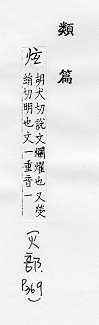 類篇
炫
胡犬切說文爛燿也又熒
絹切明也文一重音一
(火部. P369)